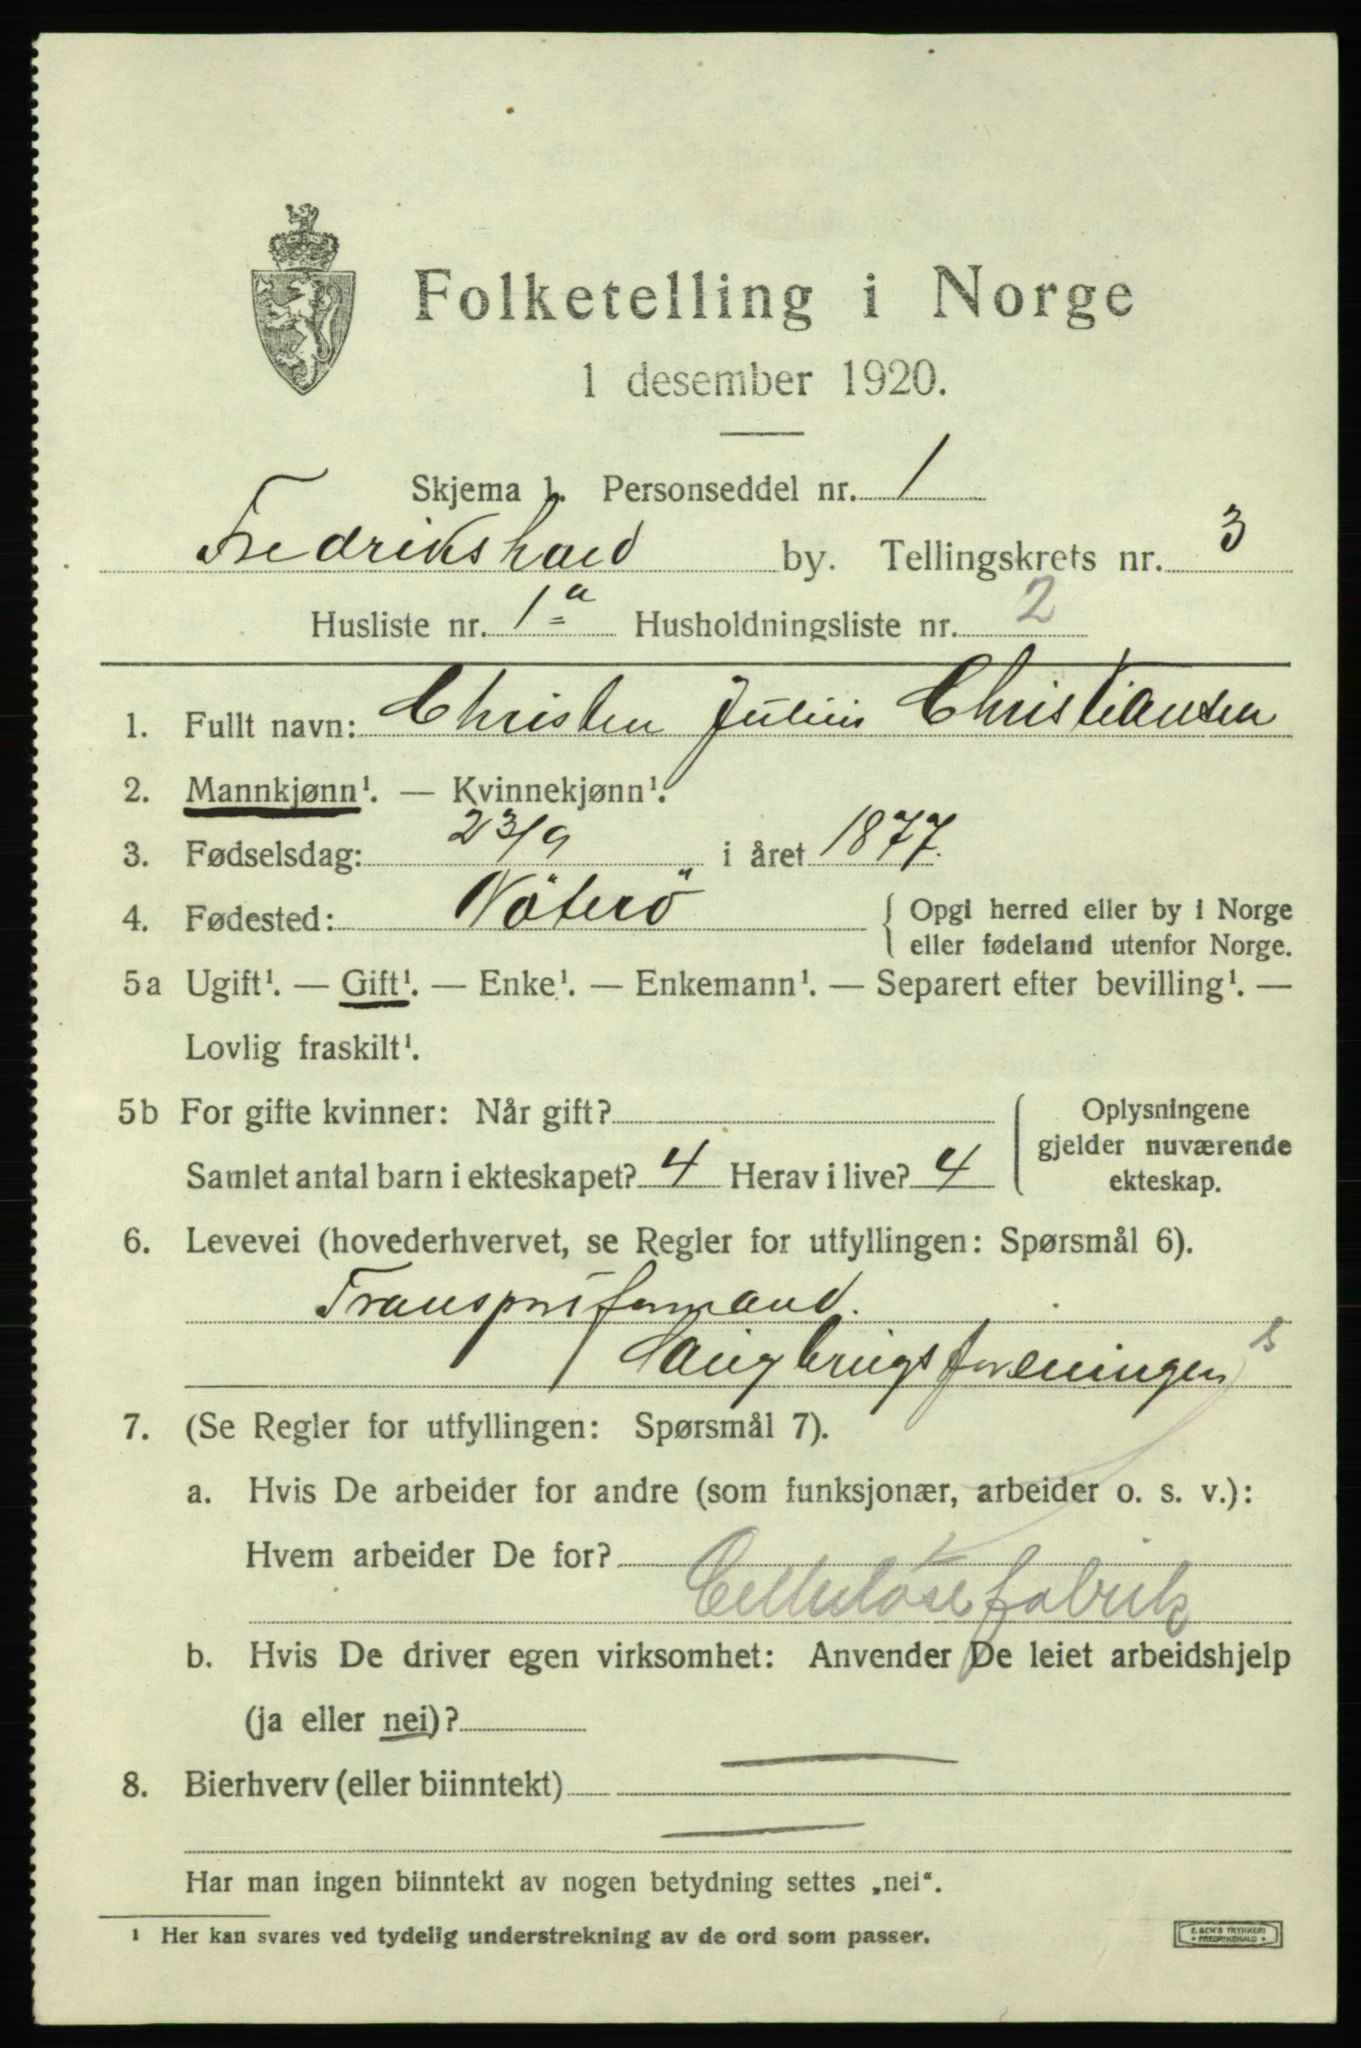 Folketelling i Norge
1 desember 1920.
Skjema 1. Personseddel nr. 1
Fredrikshald by. Tellingskrets nr. 3
Husliste nr. 1a Husholdningsliste nr. 2
1. Fullt navn: Christen Julius Christiansen
2. Mannkjønn¹. — Kvinnekjønn¹.
3. Fødselsdag: 23/9 i året 1877.
4. Fødested: Nöterö { Opgi herred eller by i Norge
eller fødeland utenfor Norge.
5a Ugift¹. — Gift¹. — Enke¹. — Enkemann¹. — Separert efter bevilling¹. —
Lovlig fraskilt¹.
5b For gifte kvinner: Når gift? { Oplysningene
gjelder nuværende
Samlet antal barn i ekteskapet? 4 Herav i live? 4
ekteskap.
6. Levevei (hovederhvervet, se Regler for utfyllingen: Spørsmål 6).
Transportformand.
Saugbrugsforeningen s
7. (Se Regler for utfyllingen: Spørsmål 7).
a. Hvis De arbeider for andre (som funksjonær, arbeider o. s. v.):
Hvem arbeider De for?
Cellulosefabrik
b. Hvis De driver egen virksomhet: Anvender De leiet arbeidshjelp
(ja eller nei)?
8. Bierhverv (eller biinntekt)
Har man ingen biinntekt av nogen betydning settes „nei“.
¹ Her kan svares ved tydelig understrekning av de ord som passer.
E. SEM'S TRYKKERI
* FREDRIKSHALD *